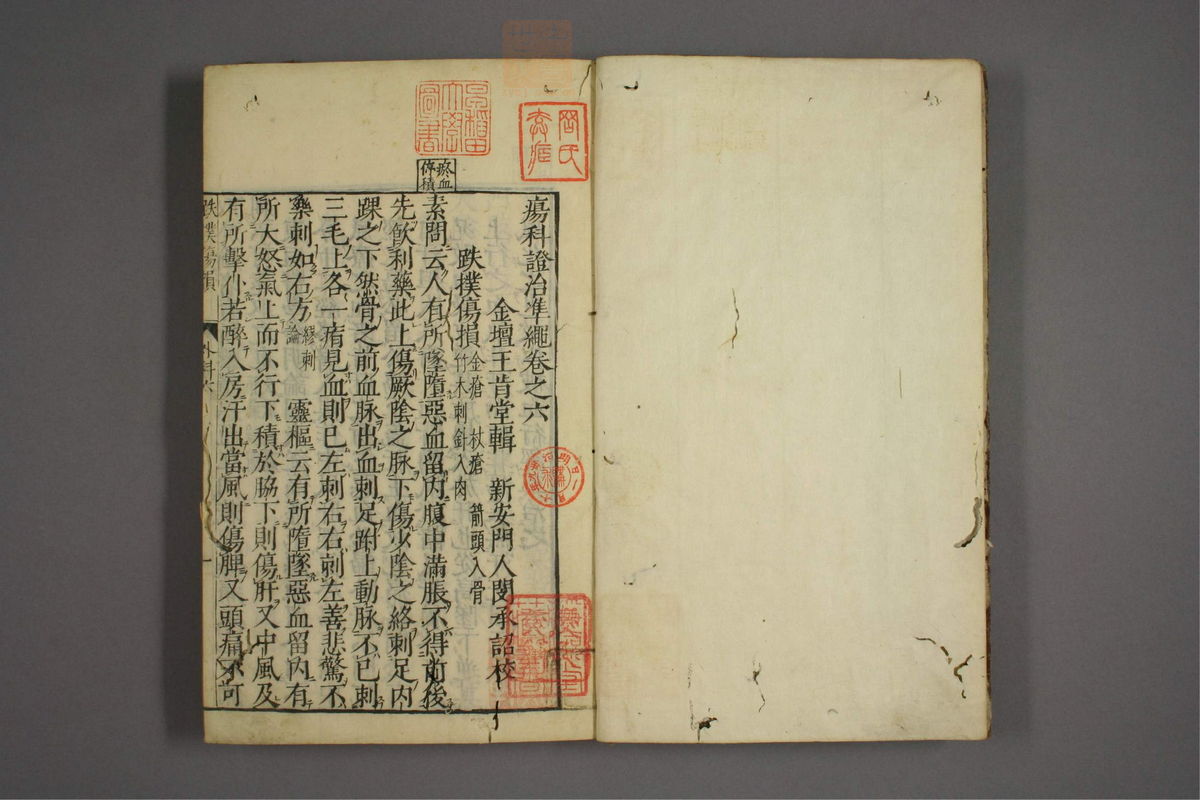 瘍科證治準繩卷之六
金壇王肯堂輯　新安門人閔承詔校
跌撲傷損　金瘡　杖瘡　箭頭入骨　竹木刺針入肉
瘀血停積
素問云人有所墜墮惡血留內腹中滿脹不得前後
先飲利藥此上傷厥陰之脉下傷少陰之絡刺足內
踝之下然骨之前血脉出血刺足跗上動脉不已刺
三毛上各一痏見血則已左刺右右刺左善悲驚不
樂刺如右方繆刺論　靈樞云有所墮墜惡血留內有
所大怒氣上而不行下積於脇下則傷肝又中風及
有所擊仆若醉入房汗出當風則傷脾又頭痛不可
跌撲傷損　外科六　一
早稻田大學圖書